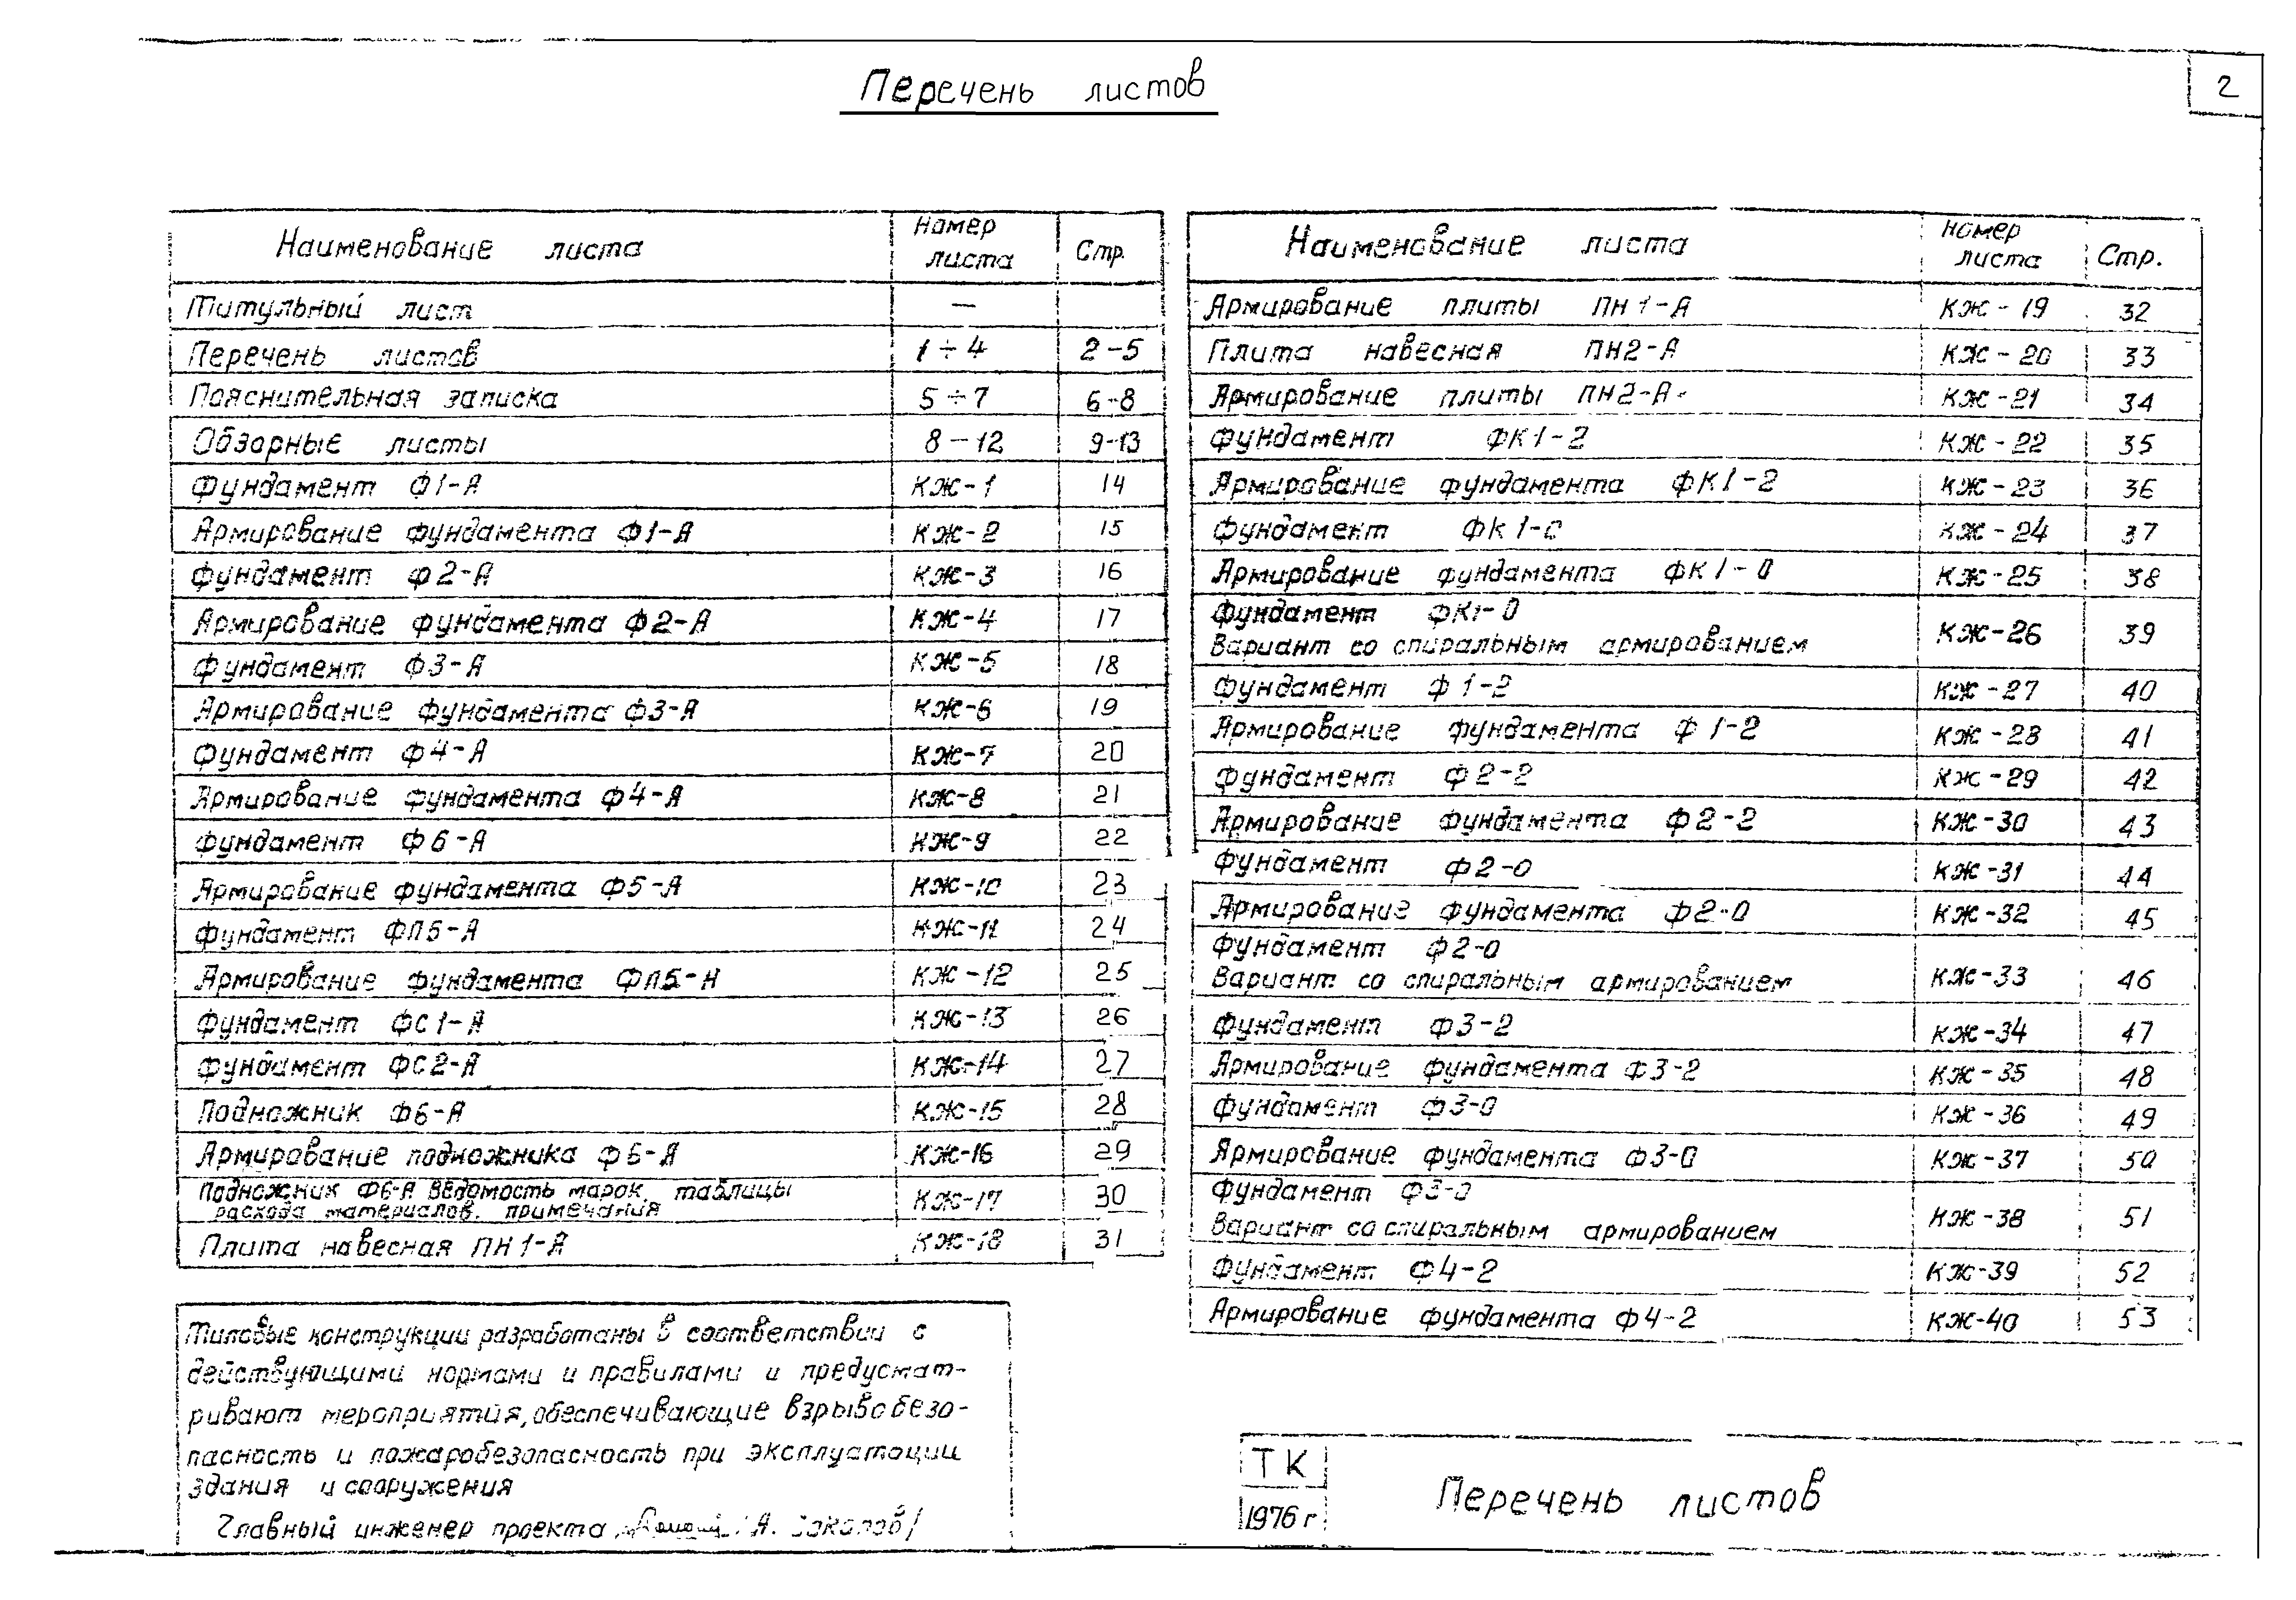 2
Перечень листов
Наименование листа Номер листа Стр.
Титульный лист —
Перечень листов 1÷4 2-5
Пояснительная записка 5÷7 6-8
Обзорные листы 8-12 9-13
Фундамент Ф1-А КЖ-1 14
Армирование фундамента Ф1-А КЖ-2 15
Фундамент Ф2-А КЖ-3 16
Армирование фундамента Ф2-А КЖ-4 17
Фундамент Ф3-А КЖ-5 18
Армирование фундамента Ф3-А КЖ-6 19
Фундамент Ф4-А КЖ-7 20
Армирование фундамента Ф4-А КЖ-8 21
Фундамент КЖ-9 22
Армирование фундамента Ф5-А КЖ-10 23
Фундамент ФП5-А КЖ-11 24
Армирование фундамента ФП5-А КЖ-12 25
Фундамент ФС1-А КЖ-13 26
Фундамент ФС2-А КЖ-14 27
Подножник Ф6-А КЖ-15 28
Армирование подножника Ф6-А КЖ-16 29
Подножник Ф6-А Ведомость марок, таблицы
расхода материалов, примечания КЖ-17 30
Плита навесная ПН1-А КЖ-18 31
Типовые конструкции разработаны в соответствии с
действующими нормами и правилами и предусмат-
ривают мероприятия, обеспечивающие взрывобезо-
пасность и пожаробезопасность при эксплуатации
здания и сооружения
Главный инженер проекта /А. Соколов/
Наименование листа Номер листа Стр.
Армирование плиты ПН1-А КЖ-19 32
Плита навесная ПН2-А КЖ-20 33
Армирование плиты ПН2-А КЖ-21 34
Фундамент ФК1-2 КЖ-22 35
Армирование фундамента ФК1-2 КЖ-23 36
Фундамент ФК1-0 КЖ-24 37
Армирование фундамента ФК1-0 КЖ-25 38
Фундамент ФК1-0
Вариант со спиральным армированием КЖ-26 39
Фундамент Ф1-2 КЖ-27 40
Армирование фундамента Ф1-2 КЖ-28 41
Фундамент Ф2-2 КЖ-29 42
Армирование фундамента Ф2-2 КЖ-30 43
Фундамент Ф2-0 КЖ-31 44
Армирование фундамента Ф2-0 КЖ-32 45
Фундамент Ф2-0
Вариант со спиральным армированием КЖ-33 46
Фундамент Ф3-2 КЖ-34 47
Армирование фундамента Ф3-2 КЖ-35 48
Фундамент Ф3-0 КЖ-36 49
Армирование фундамента Ф3-0 КЖ-37 50
Фундамент Ф3-0
Вариант со спиральным армированием КЖ-38 51
Фундамент Ф4-2 КЖ-39 52
Армирование фундамента Ф4-2 КЖ-40 53
ТК
1976 г
Перечень листов